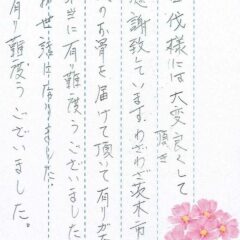 伐様には大変良くして頂き
感謝致しています。わざわざ茨木市
のお骨を届けて頂いて有りが
当に有り難度うございました
お世話になりました。
有り難度うございました。